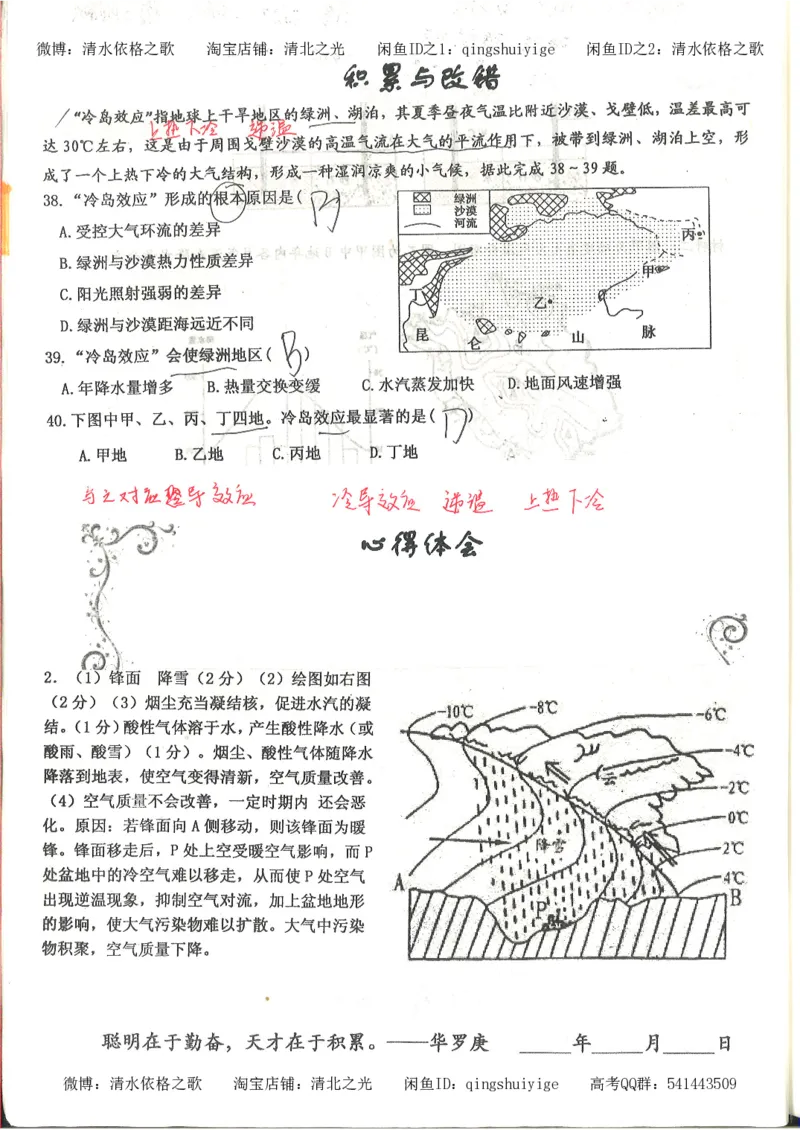 微博：清水依格之歌 淘宝店铺：清北之光 闲鱼ID之1：qingshuiyige 闲鱼ID之2：清水依格之歌
积累与改错
“冷岛效应”指地球上干旱地区的绿洲、湖泊，其夏季昼夜气温比附近沙漠、戈壁低，温差最高可
上热下冷 逆温
达 30℃左右，这是由于周围戈壁沙漠的高温气流在大气的平流作用下，被带到绿洲、湖泊上空，形
成了一个上热下冷的大气结构，形成一种湿润凉爽的小气候，据此完成 38～39题。
38. “冷岛效应”形成的根本原因是( B )
A.受控大气环流的差异
B.绿洲与沙漠热力性质差异
C.阳光照射强弱的差异
D.绿洲与沙漠距海远近不同
绿洲
沙漠
河流
丙
甲
乙
昆 仑 山 脉
39. “冷岛效应”会使绿洲地区( B )
A.年降水量增多 B.热量交换变缓 C.水汽蒸发加快 D.地面风速增强
40.下图中甲、乙、丙、丁四地。冷岛效应最显著的是( D )
A.甲地 B.乙地 C.丙地 D.丁地
与之对应 热导效应 冷导效应 逆温 上热下冷
心得体会
2. （1）锋面 降雪（2分）（2）绘图如右图
（2分）（3）烟尘充当凝结核，促进水汽的凝
结。（1分）酸性气体溶于水，产生酸性降水（或
酸雨、酸雪）（1分）。烟尘、酸性气体随降水
降落到地表，使空气变得清新，空气质量改善。
（4）空气质量不会改善，一定时期内 还会恶
化。原因：若锋面向 A 侧移动，则该锋面为暖
锋。锋面移走后，P 处上空受暖空气影响，而 P
处盆地中的冷空气难以移走，从而使 P 处空气
出现逆温现象，抑制空气对流，加上盆地地形
的影响，使大气污染物难以扩散。大气中污染
物积聚，空气质量下降。
-10℃
-8℃
-6℃
-4℃
云
-2℃
0℃
降雪
2℃
4℃
A
B
P
聪明在于勤奋，天才在于积累。——华罗庚 ____年____月____日
微博：清水依格之歌 淘宝店铺：清北之光 闲鱼ID：qingshuiyige 高考QQ群：541443509